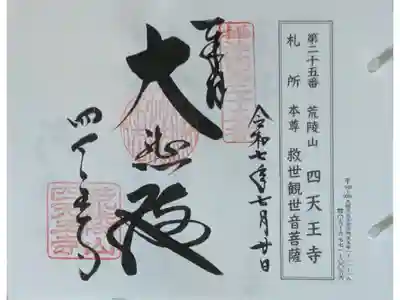 第二十五番 荒陵山 四天王寺
札所 本尊 救世観世音菩薩
令和七年七月廿日
奉拝
大悲殿
四天王寺